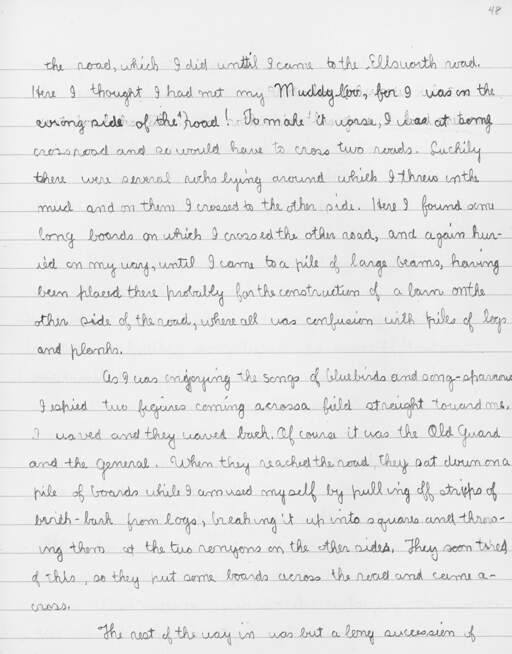 48
the road, which I did until I came to the Ellsworth road.
Here I thought I had met my Muddyloo, for I was on the
wrong side of the road! To make it worse, I was at some
crossroad and so would have to cross two roads. Luckily
there were several rocks lying around which I threw in the
mud and on them I crossed to the other side. Here I found some
long boards on which I crossed the other road, and again hur-
ied on my way, until I came to a pile of large beams, having
been placed there probably for the construction of a barn on the
other side of the road, where all was confusion with piles of logs
and planks.
As I was enjoying the songs of bluebirds and song-sparrows
I espied two figures coming across a field straight toward me.
I waved and they waved back. Of course it was the Old Guard
and the General. When they reached the road, they sat down on a
pile of boards while I amused myself by pulling off strips of
birth-bark from logs, breaking it up into squares and throw-
ing them at the two ronyons on the other sides. They soon tired
of this, so they put some boards across the road and came a-
cross.
The rest of the way in was but a long succession of